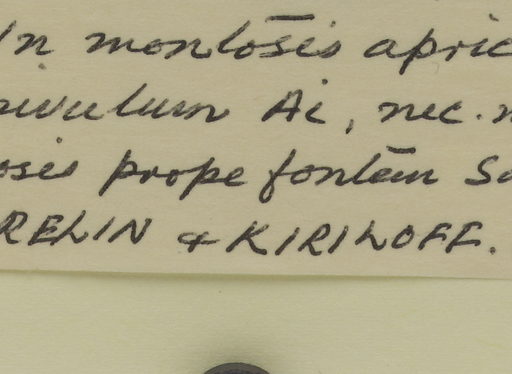 In montōsis apric
rivulum Ai, nec. n
osis prope fontēm Sa
RELIN & KIRILOFF.